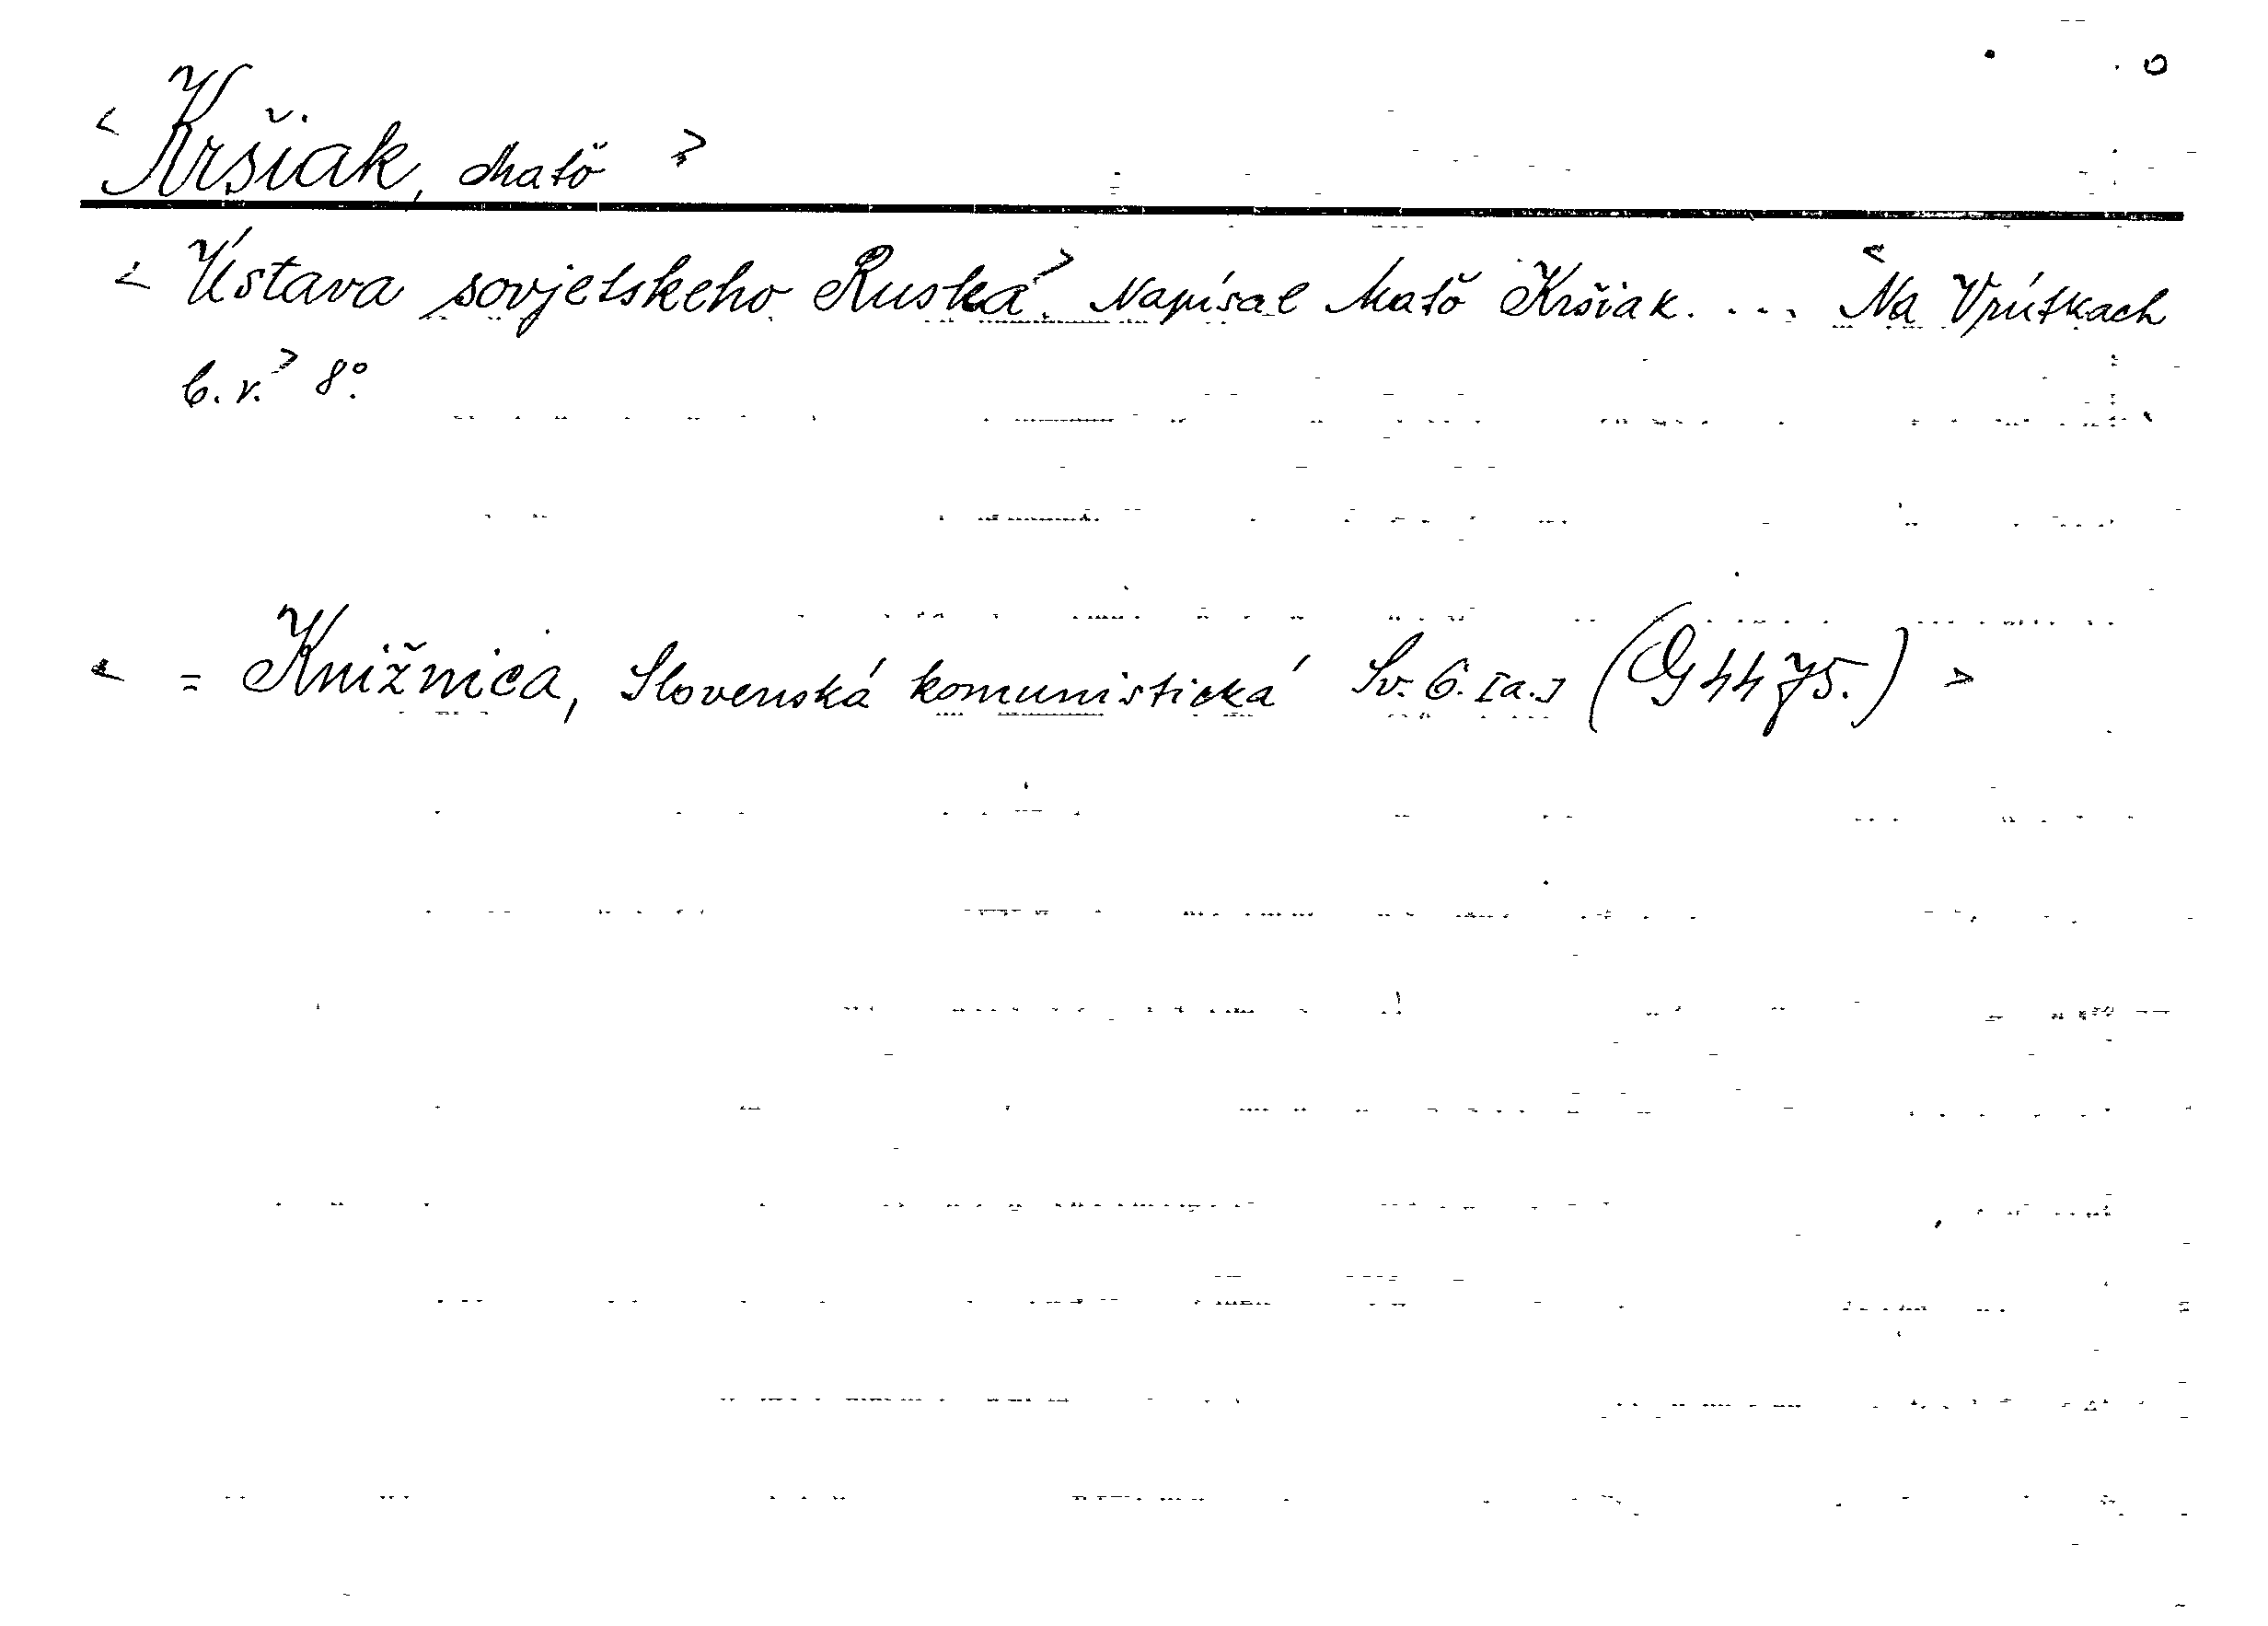 < Kršiak, Matŏ >
< Ústava sovjetskeho Ruska.> Napísal Matŏ Kršiak. ... < Na Vrútkach
b.r.> 8°.
< = Knižnica, Slovenská komunistická Sv. 6. [a.] (G 4475.) >